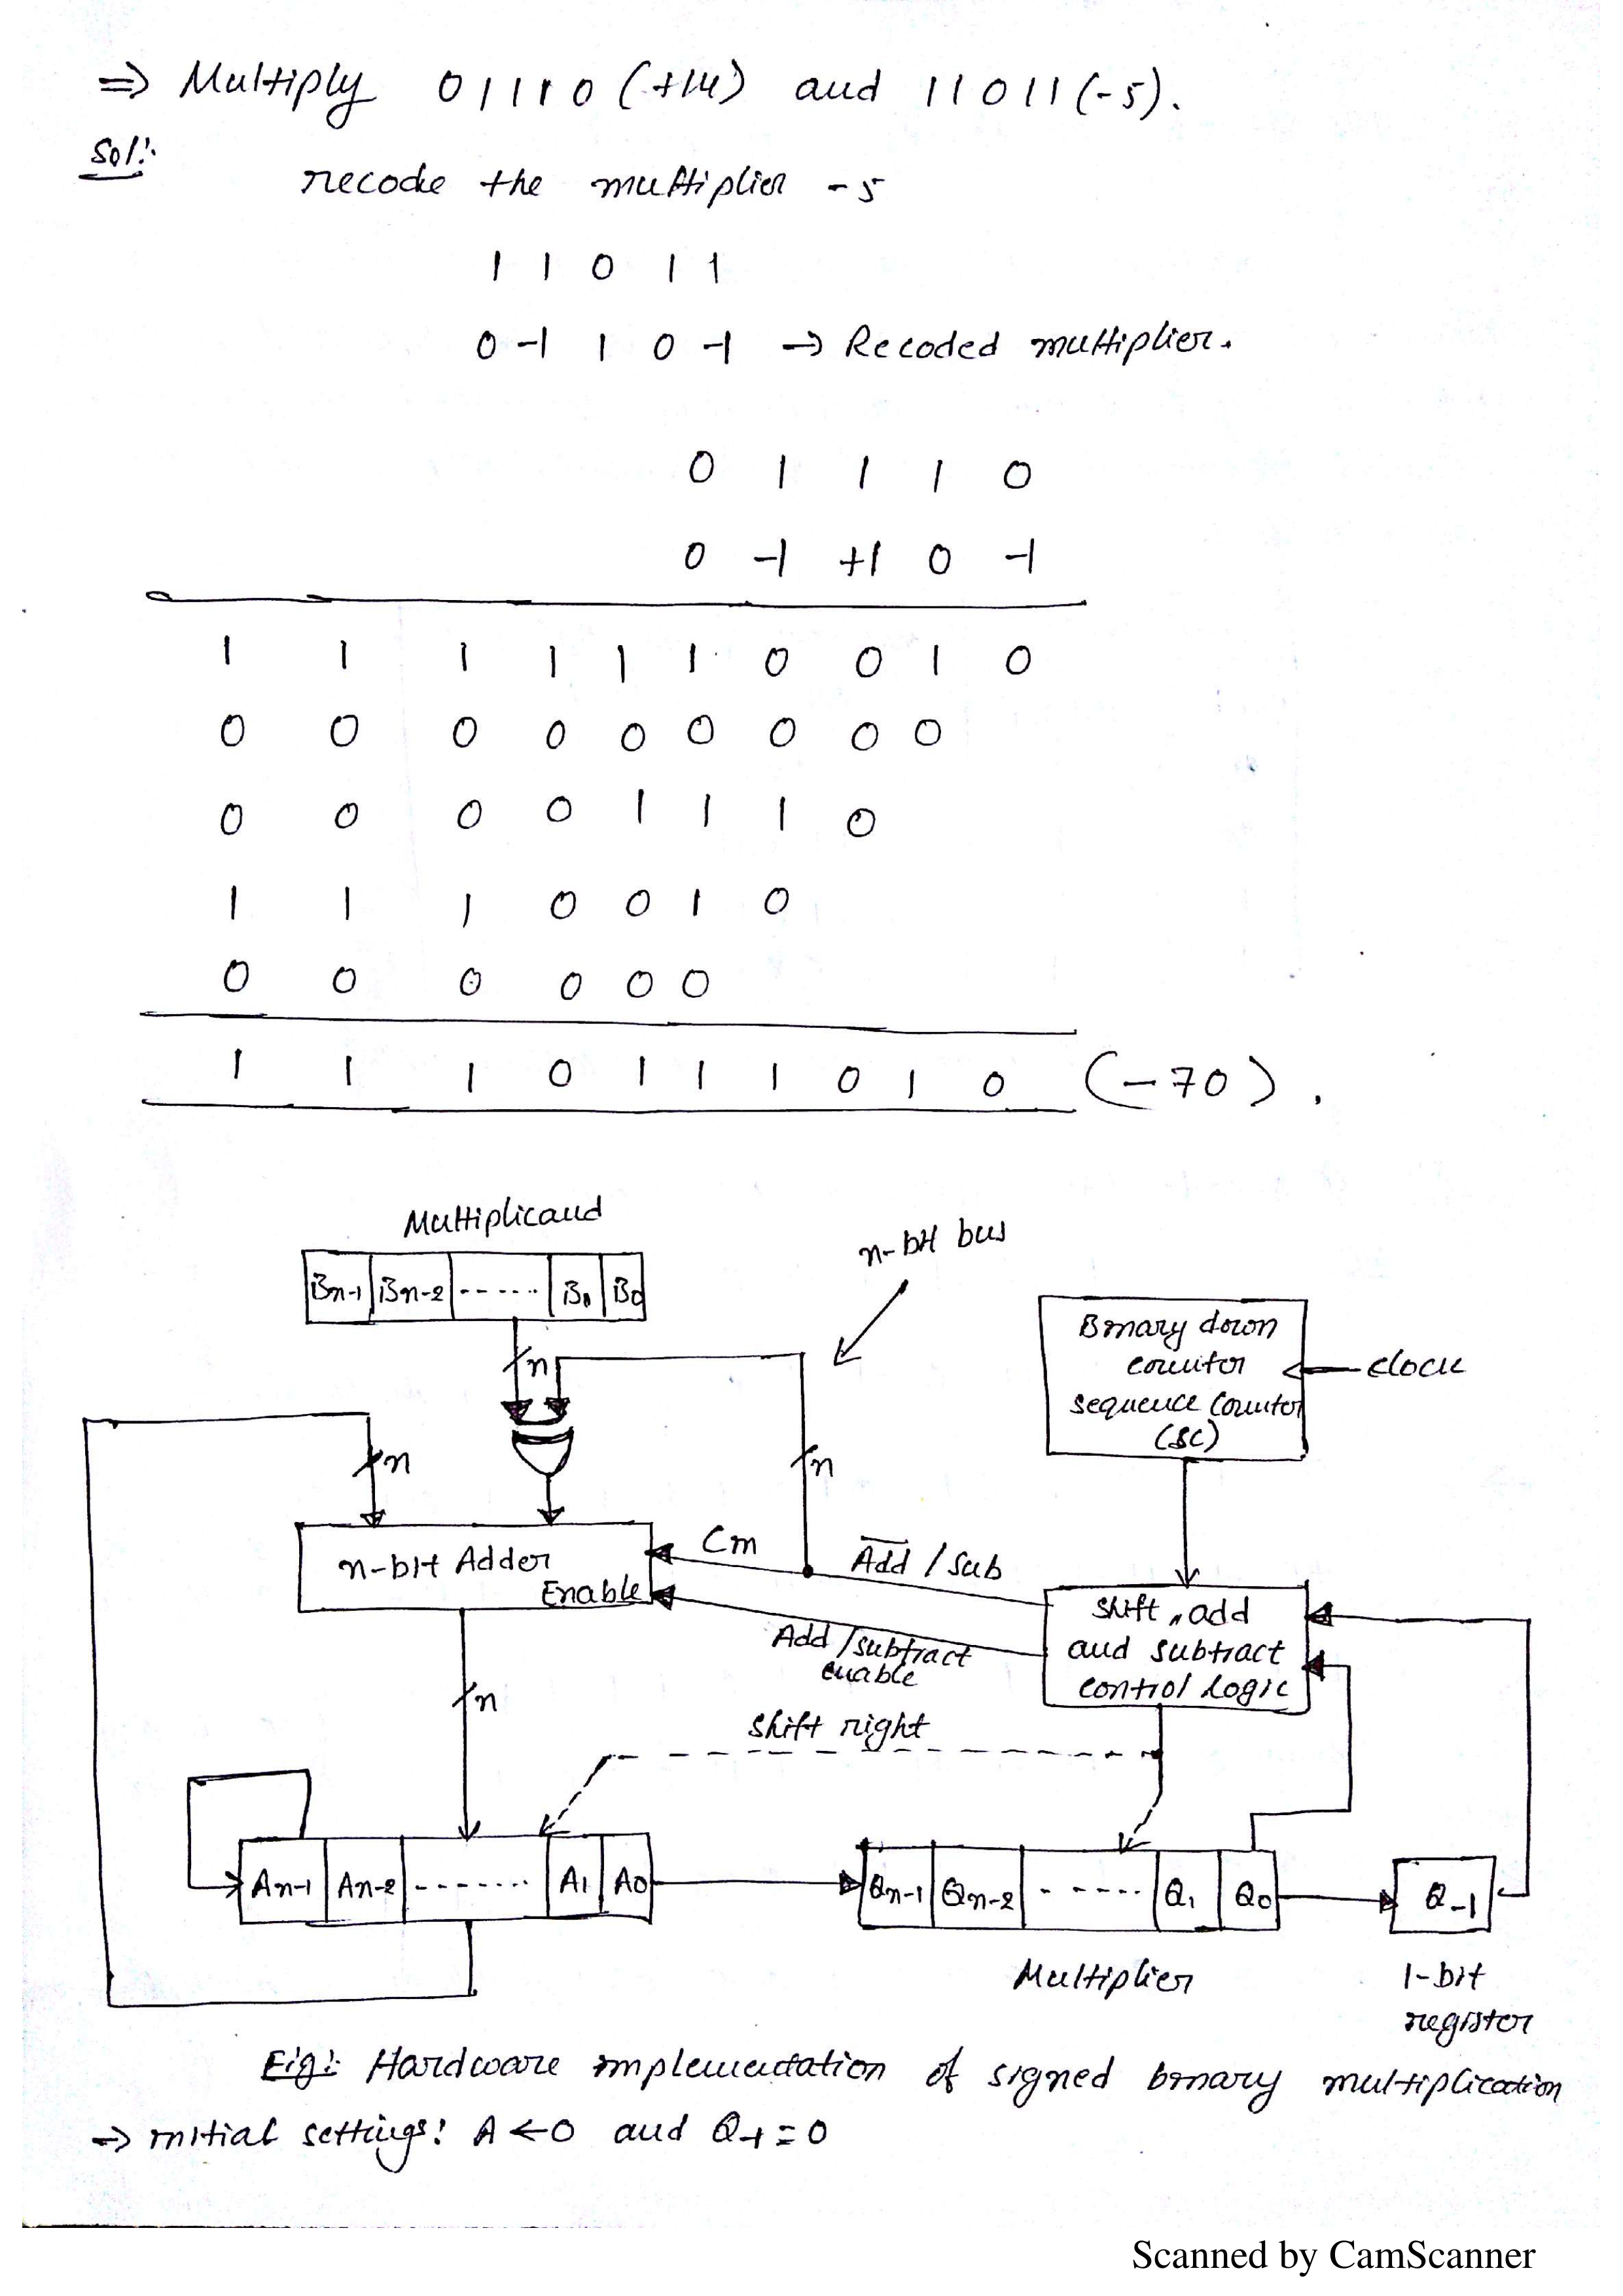 ⇒ Multiply 01110 (+14) and 11011 (-5).
Sol:
recode the multiplier -5
1 1 0 1 1
0 -1 1 0 -1 → Recoded multiplier.
0 1 1 1 0
0 -1 +1 0 -1
1 1 1 1 1 1 0 0 1 0
0 0 0 0 0 0 0 0 0
0 0 0 0 1 1 1 0
1 1 1 0 0 1 0
0 0 0 0 0 0
1 1 1 0 1 1 1 0 1 0 (-70).
Multiplicand
n-bit bus
Bn-1 Bn-2 ------ B1 B0
Binary down
counter
sequence counter
(SC)
clock
n
n
n
n-bit Adder
Enable
Cin
A̅d̅d̅ / Sub
Add / subtract
enable
shift, add
and subtract
control Logic
n
shift right
An-1 An-2 ------- A1 A0
Qn-1 Qn-2 ------ Q1 Q0
Q-1
Multiplier
1-bit
register
Fig: Hardware implementation of signed binary multiplication
→ initial settings: A ← 0 and Q-1 = 0
Scanned by CamScanner